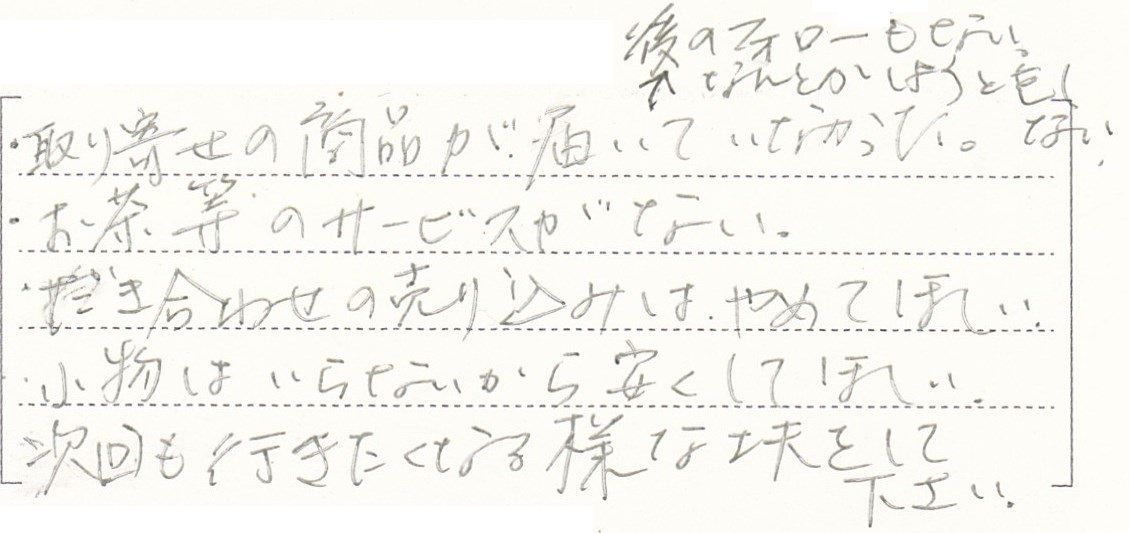 後のフォローもない。
↑なんとかしようともし
・取り寄せの商品が届いていなかった。 ない。
・お茶等のサービスがない。
・抱き合わせの売り込みは、やめてほしい。
・小物はいらないから安くしてほしい。
次回も行きたくなる様な工夫をして
下さい。